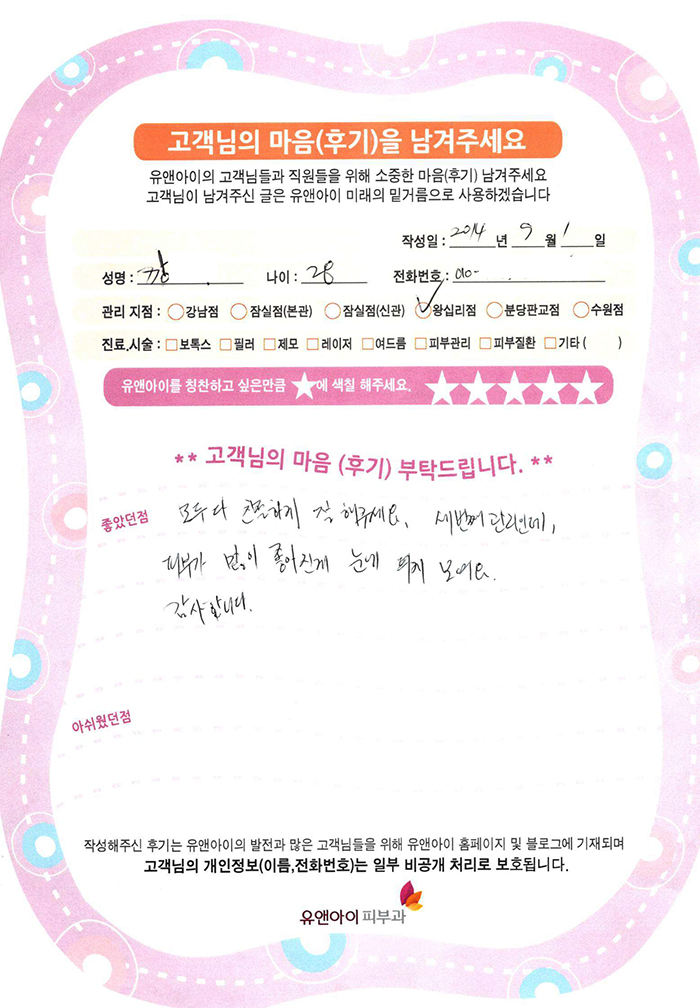 고객님의 마음(후기)을 남겨주세요
유앤아이의 고객님들과 직원들을 위해 소중한 마음(후기) 남겨주세요
고객님이 남겨주신 글은 유앤아이 미래의 밑거름으로 사용하겠습니다
작성일 : 2014 년 9 월 1 일
성명 : 강 나이 : 28 전화번호 : 010-
관리 지점 : 강남점 잠실점(본관) 잠실점(신관) 왕십리점 분당판교점 수원점
진료.시술 : 보톡스 필러 제모 레이저 여드름 피부관리 피부질환 기타 ( )
유앤아이를 칭찬하고 싶은만큼 ★에 색칠 해주세요. ★★★★★
** 고객님의 마음 (후기) 부탁드립니다. **
좋았던점 모두다 친절하게 잘 해주세요. 세번째 관리인데,
피부가 많이 좋아진게 눈에 띄게 보여요.
감사합니다.
아쉬웠던점
작성해주신 후기는 유앤아이의 발전과 많은 고객님들을 위해 유앤아이 홈페이지 및 블로그에 기재되며
고객님의 개인정보(이름,전화번호)는 일부 비공개 처리로 보호됩니다.
유앤아이 피부과